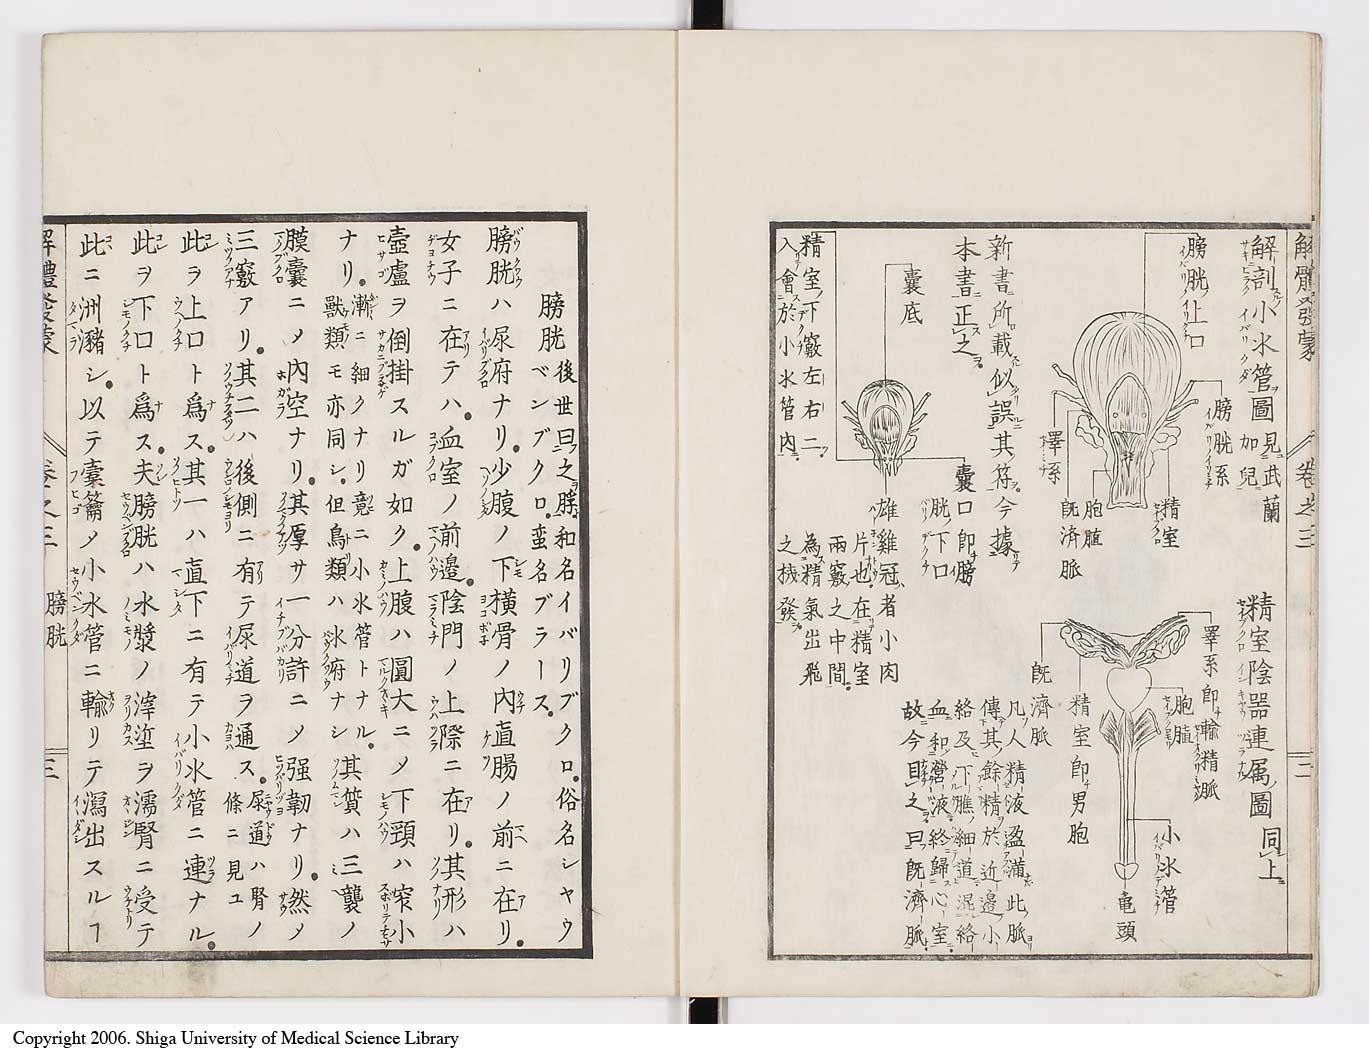 解體發蒙
卷之三
二
解剖小水管圖 見武蘭加兒
膀胱ノ上口
膀胱系
精室
胞植
既済脈
擇系
新書所載似誤其符今據
本書正之
囊底
囊口即膀胱ノ下口
雄雞冠者小肉
片也在精室
両竅之中間
為精氣出飛
之機發
精室ノ下竅左右二
入會於小水管內
精室陰器連属圖 同上
睪系即輸精脈
胞植
小水管
亀頭
精室即男胞
既濟脈
凡人精液盈満此脈
傳其餘精於近邊小
絡及下膲細道混絡
血和營液終歸心室
故今目之曰既濟脈
膀胱 後世曰之脬和名イバリブクロ俗名シヤウ
ベンブクロ蛮名ブラース
膀胱ハ尿府ナリ少腹ノ下橫骨ノ內直腸ノ前ニ在リ
女子ニ在テハ血室ノ前邊陰門ノ上際ニ在リ其形ハ
壺盧ヲ倒掛スルガ如ク上腹ハ圓大ニメ下頸ハ窄小
ナリ 漸ニ細クナリ竟ニ小水管トナル
獸類モ亦同シ但鳥類ハ水府ナシ 其質ハ三襲ノ
膜囊ニメ內空ナリ其厚サ一分許ニメ强韌ナリ然メ
三竅アリ其二ハ後側ニ有テ尿道ヲ通ス 尿道ハ腎ノ
條ニ見ユ
此ヲ上口ト爲ス其一ハ直下ニ有テ小水管ニ連ナル
此ヲ下口ト爲ス夫膀胱ハ水漿ノ滓埿ヲ濡腎ニ受テ
此ニ洲瀦シ以テ橐籥ノ小水管ニ輸リテ瀉出スルヿ
解體發蒙
卷之三 膀胱
三
Copyright 2006. Shiga University of Medical Science Library